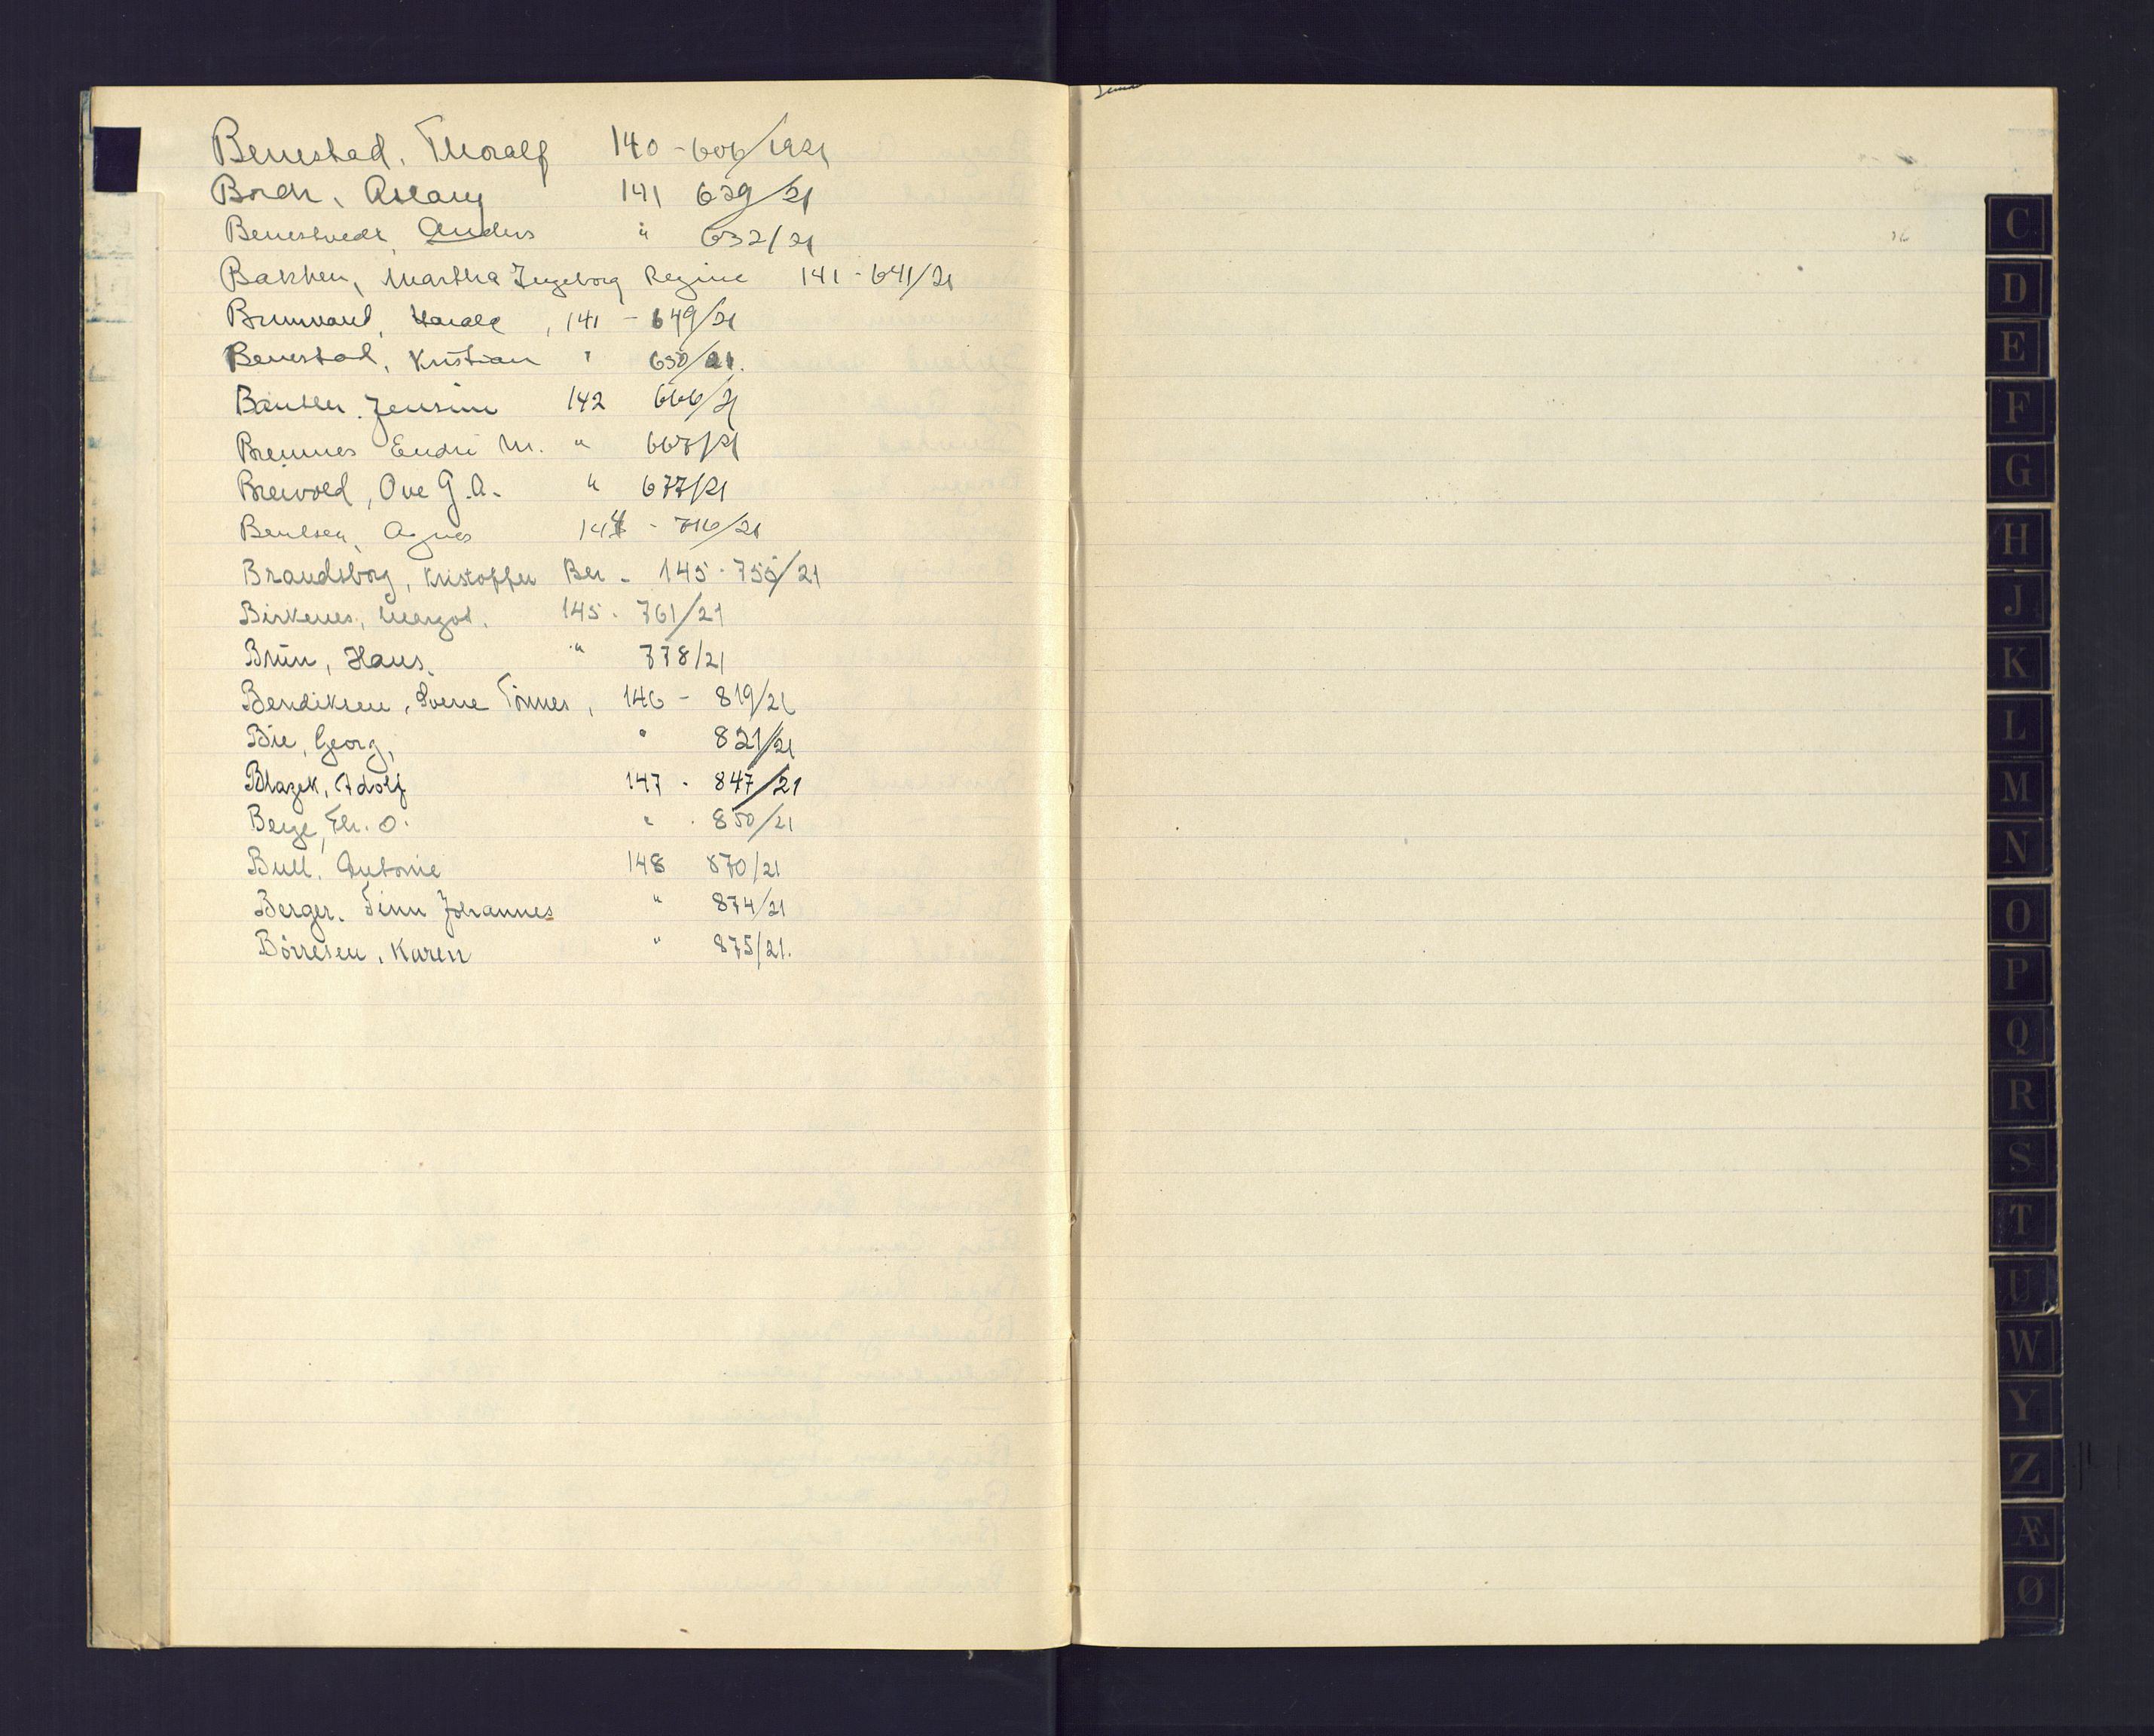 Benestad, Thoralf 140 - 606/1921
Borch, Aslaug 141 629/21
Benestvedt, Anders " 632/21
Bakken, Martha Ingeborg Regine 141 - 641/21
Brunvand, Harald, 141 - 649/21
Benestad, Kristian " 650/21.
Jensine 142 666/21
Bremnes Endre M. " 667/21
Breivold, Ove G.A. " 677/21
Berntsen, Agnes 144 - 716/21
Brandsborg, Kristoffer Ber - 145 - 755/21
Birkenes, Margot, 145 - 761/21
Brün, Hans, " 778/21
Bendiksen, Sverre Tönnes, 146 - 819/21
Bie, Georg, " 821/21
Blazek, Adolf 147 - 847/21
Berge, Th. O. " - 850/21
Bull, Antonie 148 870/21
Berger, Finn Johannes " 874/21
Börresen, Karen " 875/21.
C
D
E
F
G
H
J
K
L
M
N
O
P
Q
R
S
T
U
W
Y
Z
Æ
Ø